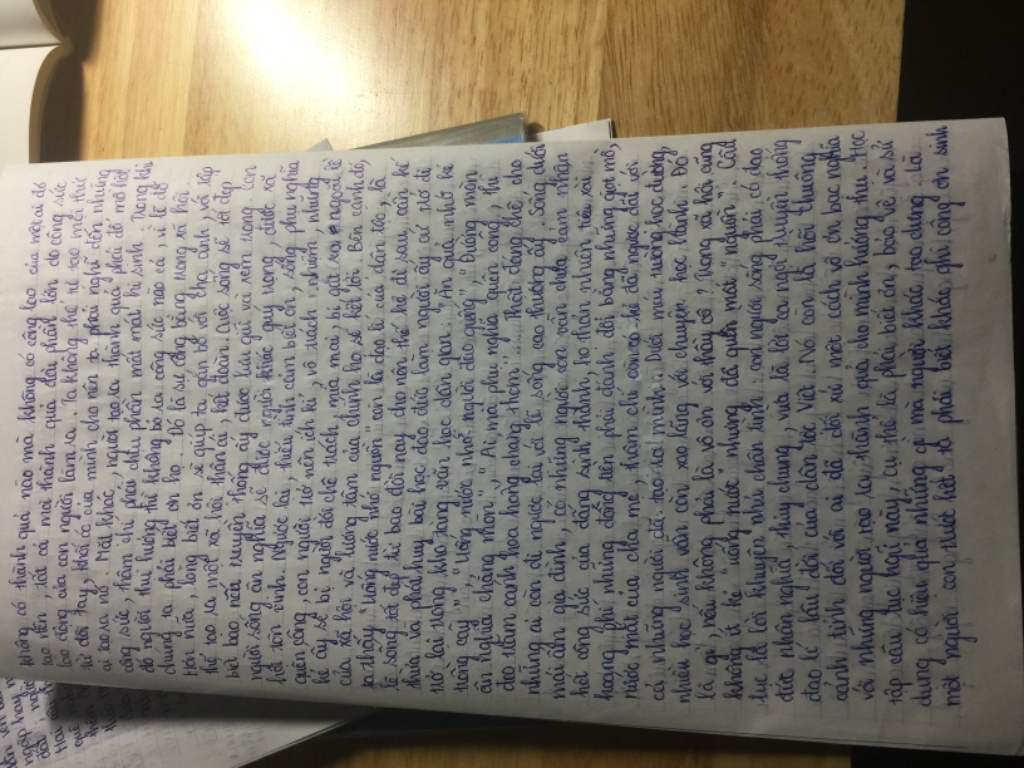 không có thành quả nào mà không có công lao của một ai đó
tạo nên, tất cả mọi thành quả đều phần lớn do công sức
lao động của con người làm ra. Ta không thể hé tạo mọi thứ
từ đôi tay, khối óc của mình cho nên ta phải nghĩ đến những
ai tạo ra nó. Mặt khác, người tạo ra thành quả phải đổ mồ hôi
công sức, thậm chí phải chịu phần mất mát hi sinh. Trong khi
đó người thụ hưởng thì không bỏ ra công sức nào cả, vì lẽ đó
chúng ta phải biết ơn họ. Đó là sự công bằng trong xã hội.
Hơn nữa, lòng biết ơn sẽ giúp ta gắn bó với cha anh, với tập
thể tạo ra một xã hội thân ái, kết đoàn. Cuộc sống sẽ tốt đẹp
biết bao nếu truyền thống ấy được lưu giữ và xem trọng. Con
người sống ân nghĩa, sẽ được người khác quý trọng, được xã
hội tôn vinh. Ngược lại, thiếu tình cảm biết ơn, sống phụ nghĩa
quên công, con người trở nên ích kỉ, vô trách nhiệm, những
kẻ ấy sẽ bị người đời chê trách, mỉa mai, bị gạt ra ngoài lề
của xã hội và lương tâm của chính họ sẽ kết tội. Bên cạnh đó,
ta thấy "uống nước nhớ nguồn" còn là đạo lí của dân tộc, là
lẽ sống tốt đẹp từ bao đời nay cho nên thế hệ đi sau cần kế
thừa và phát huy bài học đạo đức làm người ấy
trở lại trong kho tàng văn học dân gian: "Ăn quả nhớ kẻ
trồng cây", "Uống nước nhớ người đào giếng", "Đường mòn
ân nghĩa chẳng mòn", "Ai mà phụ nghĩa quên công, thì
đeo trăm cánh hoa hồng chẳng thơm"..... Thật đáng chê, cho
những ai còn đi ngược lại với lẽ sống cao thượng ấy. Sống dưới
mái ấm gia đình, có những người con vẫn chưa cảm nhận
hết công sức của đấng sinh thành, họ thản nhiên tiêu xài
hoang phí những đồng tiền phải đánh đổi bằng những giọt mồ hôi,
nước mắt của cha mẹ, thậm chí còn có kẻ đối ngược đãi với
cả những người đã tạo ra mình. Dưới mái trường học đường,
nhiều học sinh vẫn còn xao lãng với chuyện học hành. Đó
là gì, nếu không phải là vô ơn với thầy cô, trong xã hội cũng
không ít kẻ "uống nước" nhưng đã quên mất "nguồn". Câu
tục là lời khuyên nhủ chân tình, con người sống phải có đạo
đức nhân nghĩa, thủy chung, vừa là lời ca ngợi truyền thống
đạo lí lâu đời của dân tộc Việt. Nó còn là hồi chuông
cảnh tỉnh đối với ai đã đối xử một cách vô ơn, bạc nghĩa
với những người tạo ra thành quả cho mình hưởng thụ. Học
tập câu tục ngữ này, cụ thể là phải biết ơn, bảo vệ và sử
dụng có hiệu quả những gì mà người khác tạo dựng. Là
một người con trước hết ta phải biết khắc ghi công ơn sinh